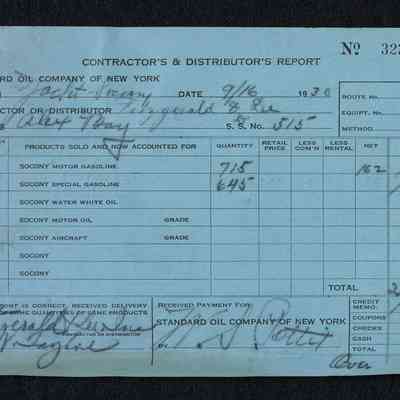 CONTRACTOR'S & DISTRIBUTOR'S REPORT
Nº 323
RD OIL COMPANY OF NEW YORK
DATE 9/16 1930
ROUTE NO.
CTOR OR DISTRIBUTOR Fitzgerald & Lee
EQUIPT. NO.
Alex Bay S. S. No. 515
METHOD
PRODUCTS SOLD AND NOW ACCOUNTED FOR QUANTITY RETAIL PRICE LESS COM'N LESS RENTAL NET
SOCONY MOTOR GASOLINE 715 162
SOCONY SPECIAL GASOLINE 645
SOCONY WATER WHITE OIL
SOCONY MOTOR OIL GRADE
SOCONY AIRCRAFT GRADE
SOCONY
SOCONY
TOTAL 2
ORT IS CORRECT, RECEIVED DELIVERY
OF SAME PRODUCTS
RECEIVED PAYMENT FOR
STANDARD OIL COMPANY OF NEW YORK
CREDIT MEMO.
COUPONS
CHECKS
CASH
TOTAL
OR DISTRIBUTOR
Over